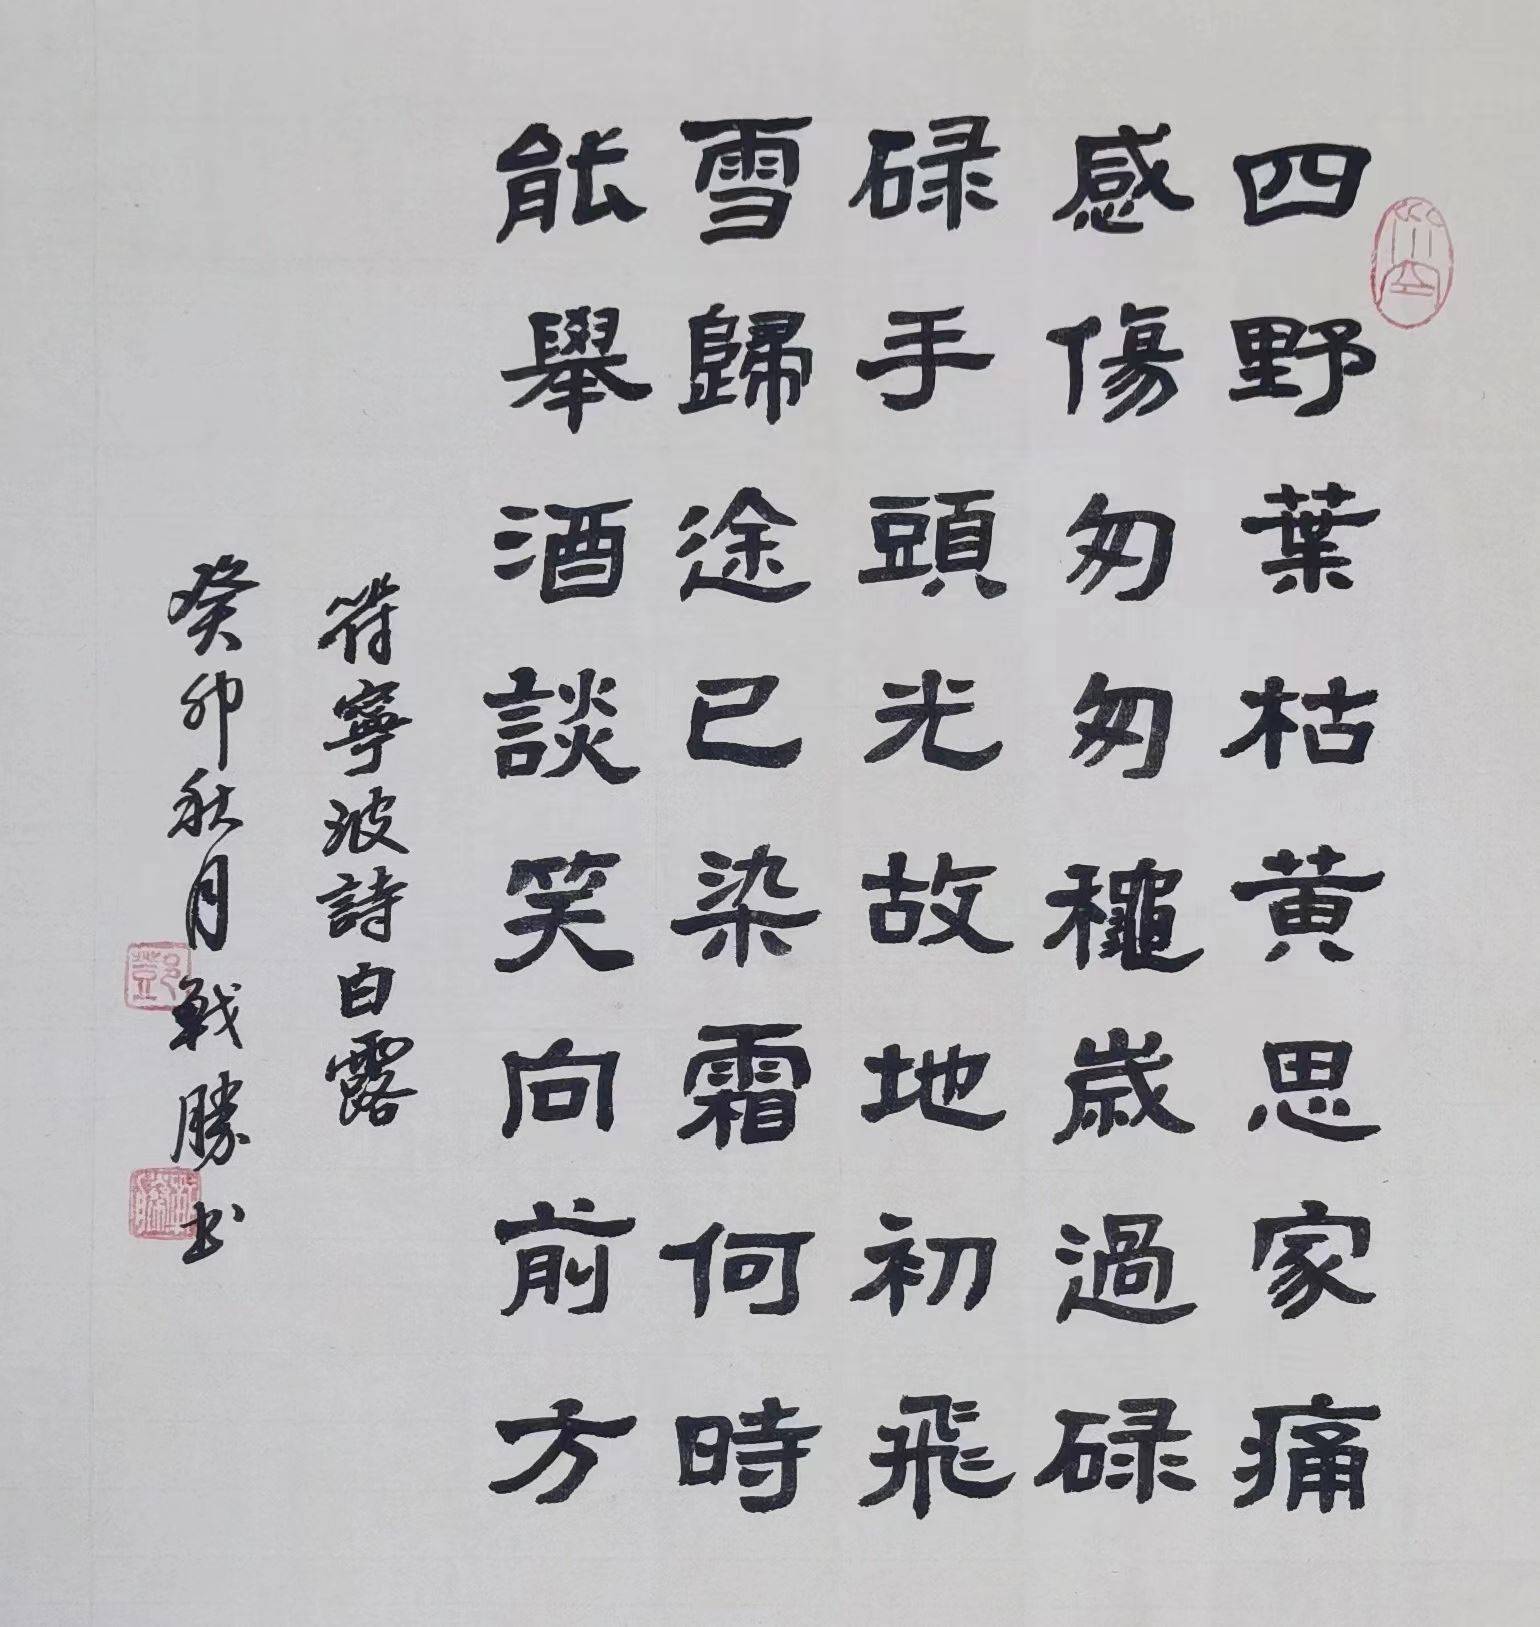 四野葉枯黄思家痛
感傷匆匆龝歲過碌
碌手頭光故地初飛
雪歸途已染霜何時
能舉酒談笑向前方
符寧波詩白露
癸卯秋月戰勝书